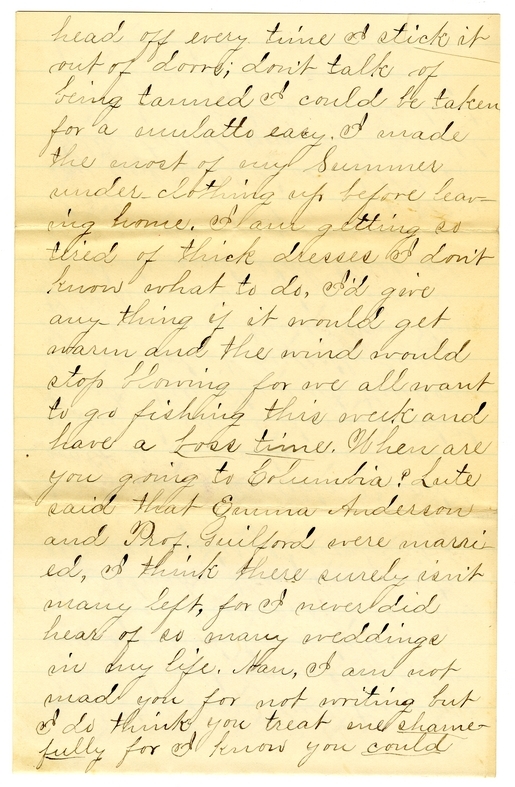 head off every time I stick it
out of doors; don't talk of
being tanned I could be taken
for a mulatto easy. I made
the most of my Summer
under-clothing up before leav-
ing home. I am getting so
tired of thick dresses I don't
know what to do, I'd give
any-thing if it would get
warm and the wind would
stop blowing for we all want
to go fishing this week and
have a boss time. When are
you going to Columbia? Lute
said that Emma Anderson
and Prof. Guilford were marri-
ed, I think there surely isn't
many left, for I never did
hear of so many weddings
in my life. Nan, I am not
mad you for not writing but
I do think you treat me shame-
fully for I know you could